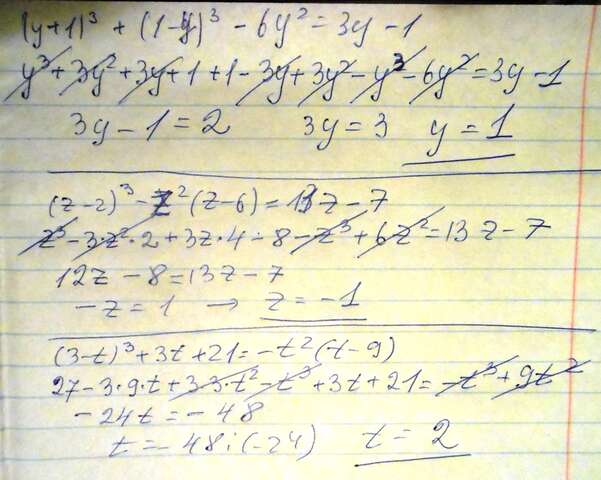 (y+1)³ + (1-y)³ - 6y² = 3y - 1
y³ + 3y² + 3y + 1 + 1 - 3y + 3y² - y³ - 6y² = 3y - 1
3y - 1 = 2 3y = 3 y = 1
(z-2)³ - z²(z-6) = 13z - 7
z³ - 3·z²·2 + 3z·4 - 8 - z³ + 6z² = 13z - 7
12z - 8 = 13z - 7
-z = 1 → z = -1
(3-t)³ + 3t + 21 = -t²(t-9)
27 - 3·9·t + 3·3·t² - t³ + 3t + 21 = -t³ + 9t²
-24t = -48
t = -48:(-24) t = 2